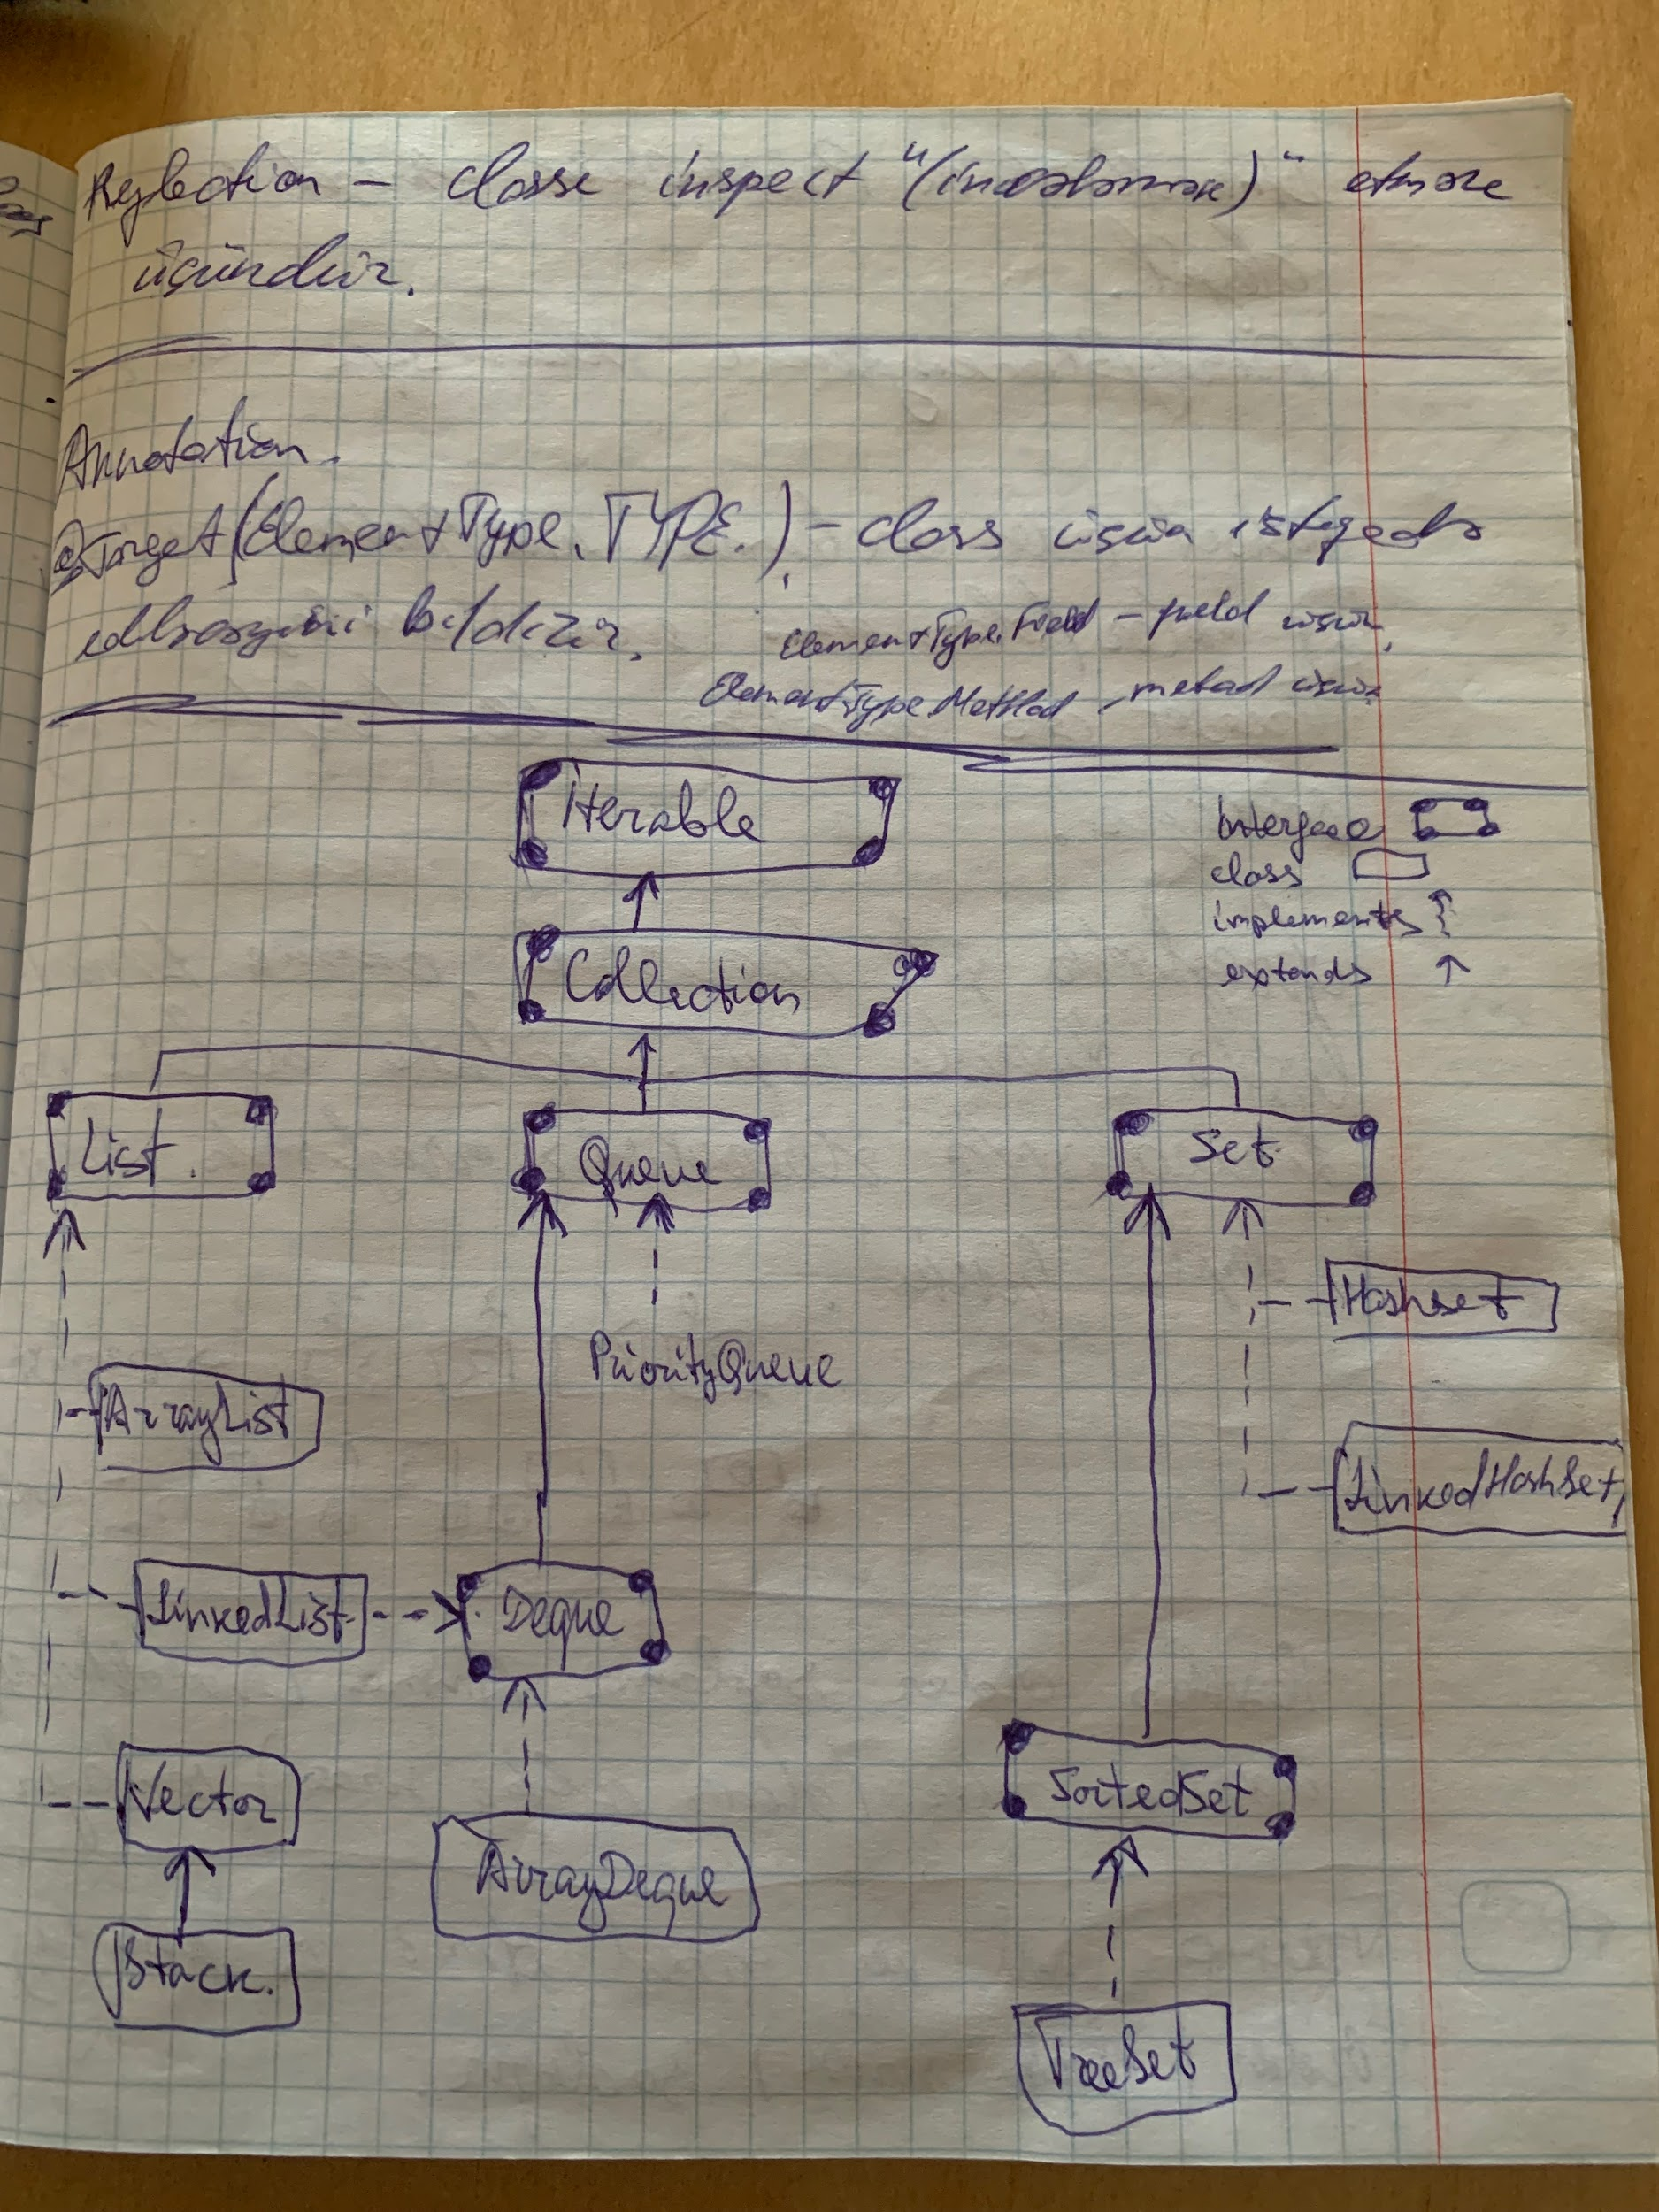 Reflection – classı inspect "(incələmək)" etmək
üçündür.
Annotation.
@Target(ElementType.TYPE.) – class üçün istifadə
edilməsini bildirir.
ElementType.Field – field üçün,
ElementType.Method – metod üçün
Iterable
Interface
class
implements
extends
Collection
List.
Queue
Set
Hashset
PriorityQueue
ArrayList
LinkedHashSet
LinkedList
Deque
Vector
SortedSet
ArrayDeque
Stack.
TreeSet